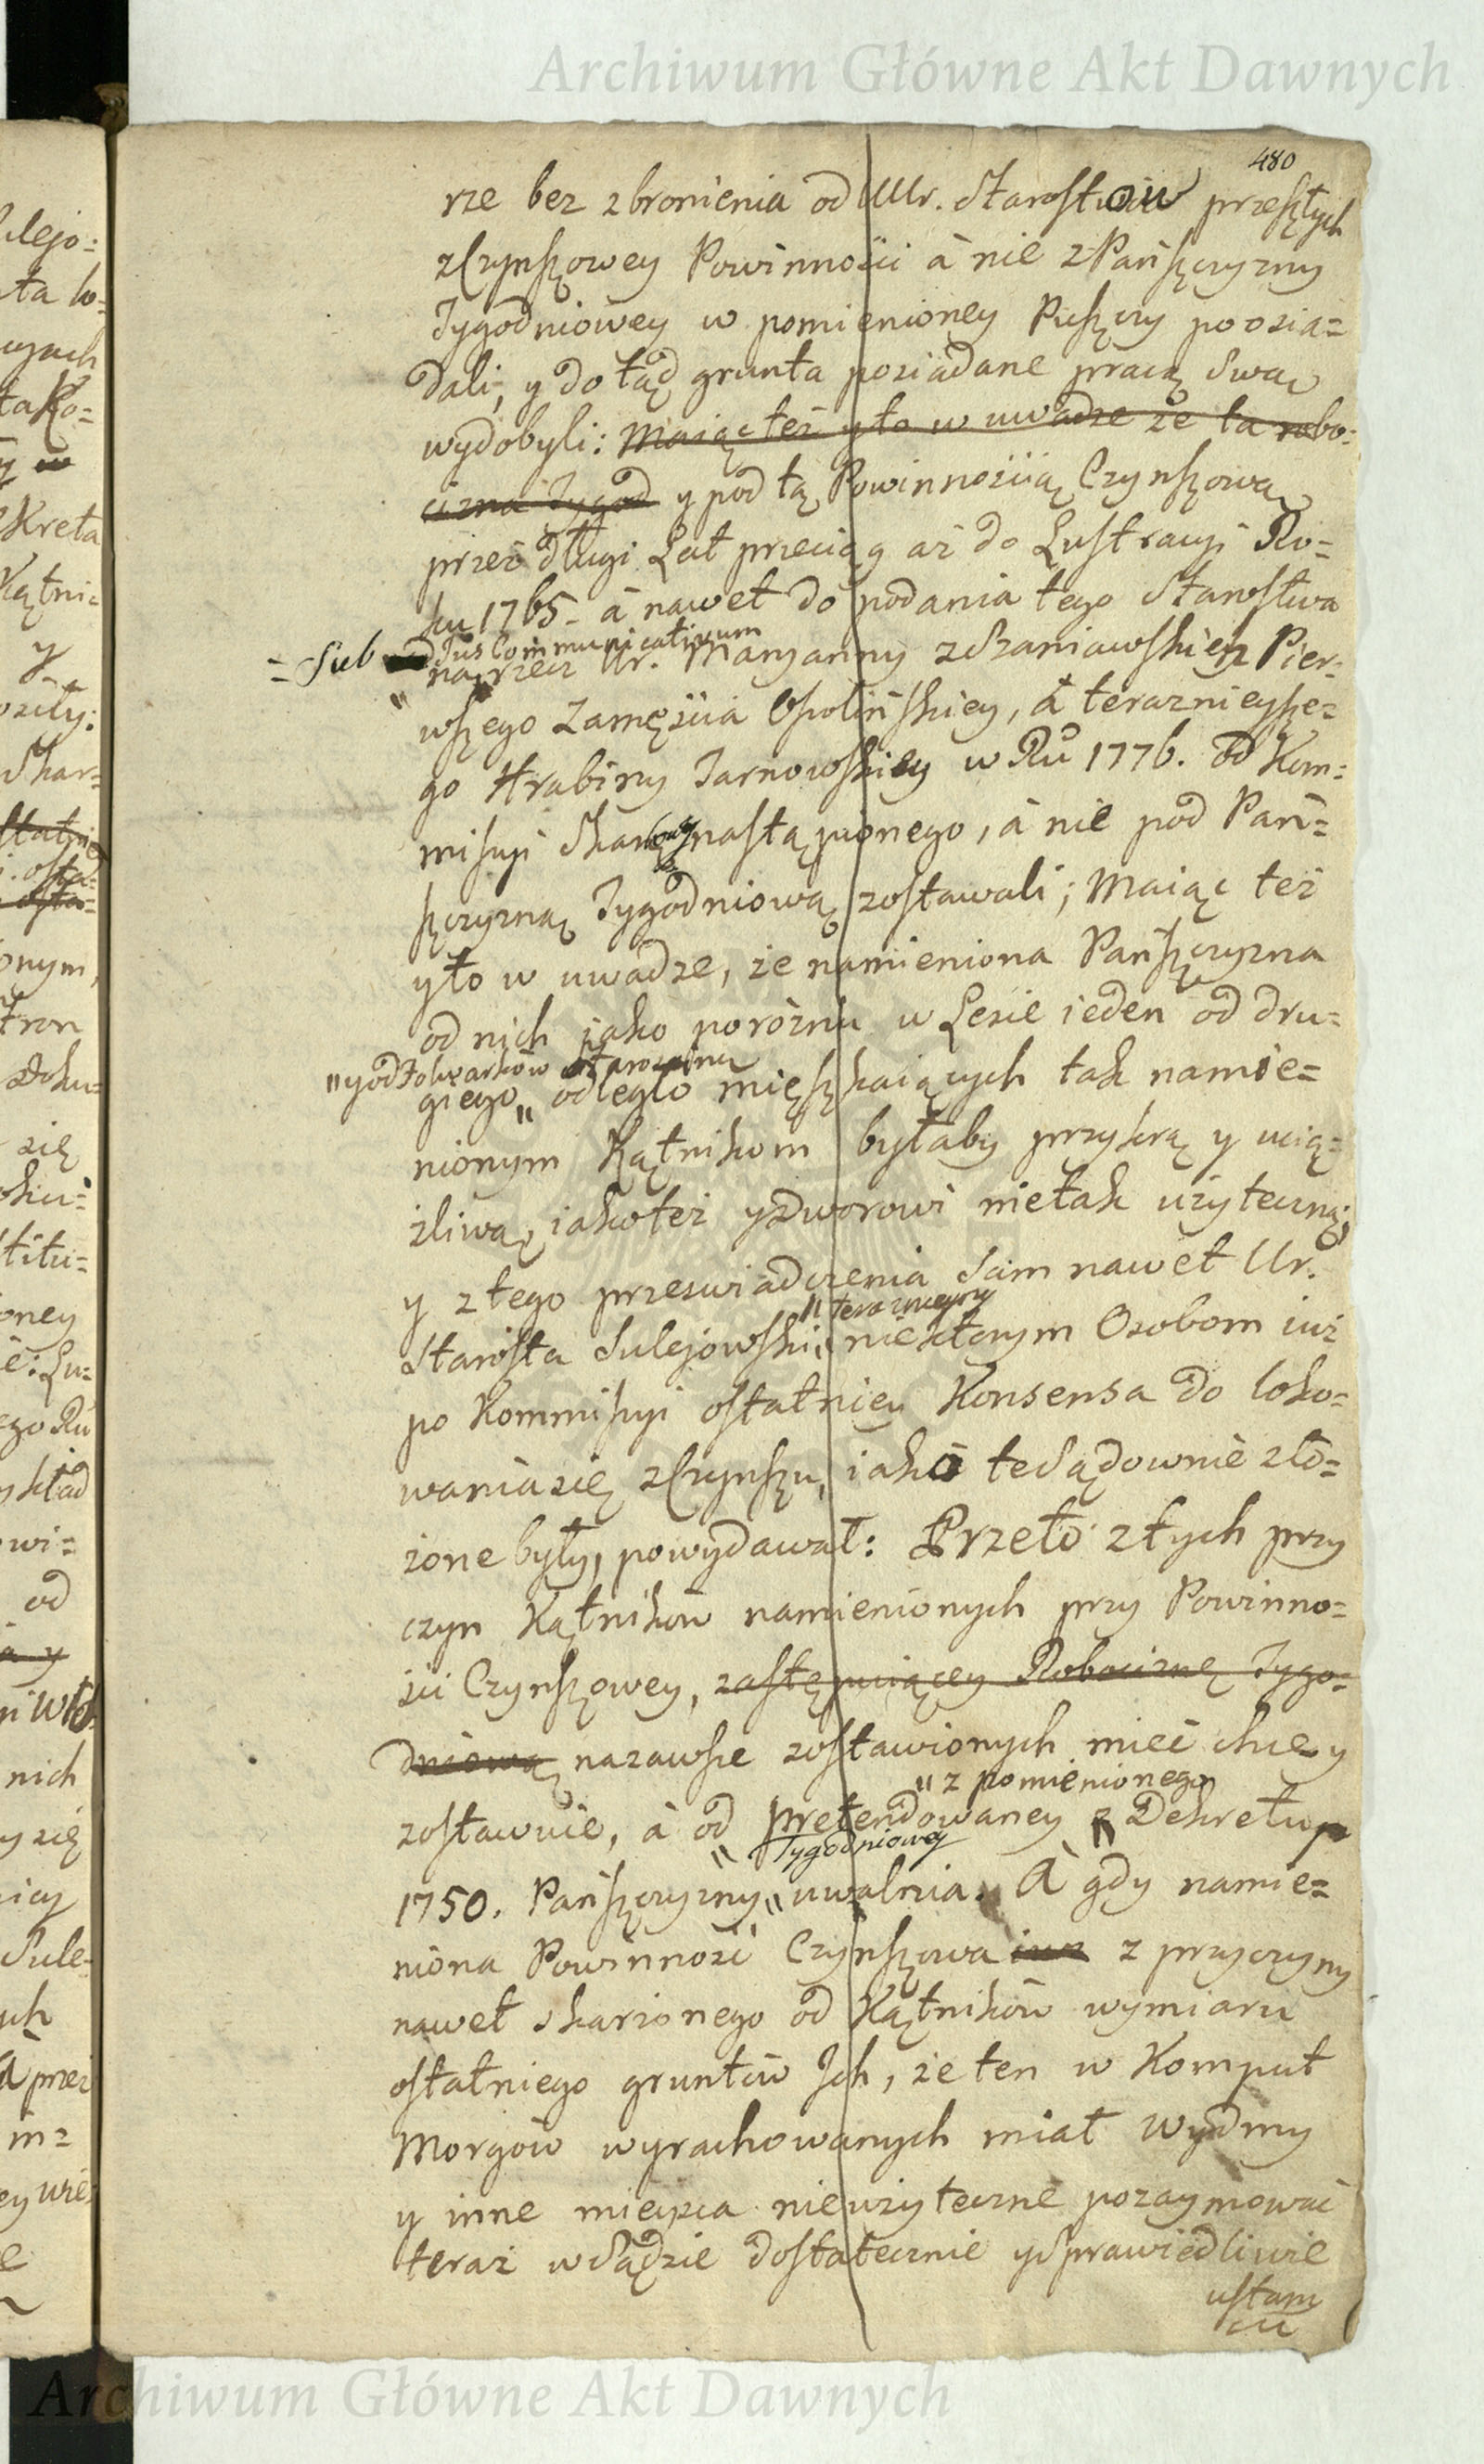 Archiwum Główne Akt Dawnych
480
rze bez zbronienia od UUr. Starostow przeszłych
z Czynszowey Powinności à nie z Pańszczyzny
Tygodniowey w pomienioney Puszczy poosia=
dali, y do tąd grunta posiadane pracą swą
wydobyli: Maiąc też y to w uwadze że ta robo=
cizna Tygod y pod tą Powinnością Czynszową
przez długi Lat przeciąg aż do Lustracyi Ro=
ku 1765. à nawet do podania tego Starostwa
= sub Jus Communicativum
na rzecz Ur. Maryanny z Szaniawskich Pier=
wszego Zamęścia Opolińskiey, à teraznieysze=
go Hrabiny Tarnowskiey w Ru 1776. od Kom=
missyi Skarbowey nastąpionego, à nie pod Pań=
szczyzną Tygodniową zostawali; Maiąc też
y to w uwadze, że namieniona Pańszczyzna
od nich jako porożnu w Lesie ieden od dru=
"y od Folwarków Starościń
giego " odległo mięszkaiących tak namie=
nionym Kątnikom byłaby przykrą y ucią=
żliwą, iako też y Dworowi nie tak użyteczną;
y z tego przeswiadczenia Sam nawet Ur.
" teraznieyszy
Starosta Sulejowski " niektorym Osobom iuż
po Kommissyi ostatniey Konsensa do loko=
wania się z Czynszu, iako te Sądownie zło=
żone były, powydawał: Przeto z tych przy
czyn Kątników namienionych przy Powinno=
ści Czynszowey, zastępuiącey Robociznę Tygo=
dniową nazawsze zostawionych mieć chce y
" z pomienionego
zostawuie, à od pretendowaney z Dekretu
" Tygodniowey
1750. Pańszczyzny " uwalnia. A gdy namie=
niona Powinność Czynszowa iuż z przyczyny
nawet skarżonego od Kątników wymiaru
ostatniego gruntów Ich, że ten w Komput
Morgów wyrachowanych miał Wydmy
y inne mieysca nieużyteczne pozaymować
teraz w Sądzie dostatecznie y sprawiedliwie
Archiwum Główne Akt Dawnych